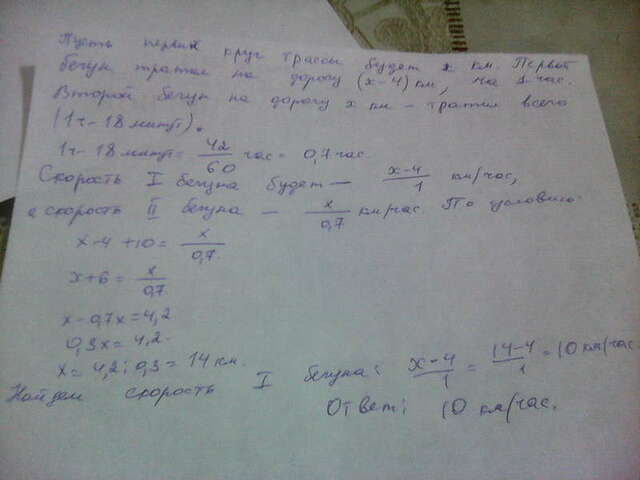 Пусть первый круг трассы будет x км. Первый
бегун тратил на дорогу (x-4) км, на 1 час.
Второй бегун на дорогу x км - тратил всего
(1ч - 18 минут).
1ч - 18 минут = 42/60 час = 0,7 час.
Скорость I бегуна будет — x-4/1 км/час,
а скорость II бегуна — x/0,7 км/час. По условию:
x-4+10 = x/0,7.
x+6 = x/0,7
x-0,7x=4,2
0,3x=4,2.
x= 4,2:0,3 = 14 км.
Найдем скорость I бегуна: x-4/1 = 14-4/1 = 10 км/час.
Ответ: 10 км/час.